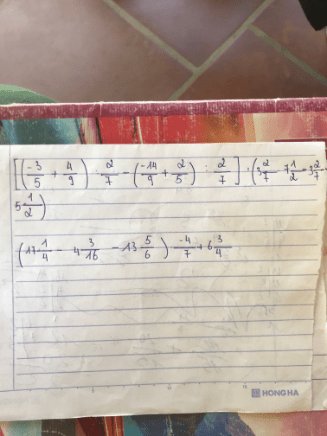 [(-3/5 + 4/9) · 2/7 - (-14/9 + 2/5) : 2/7] · (3 2/7 · 7 1/2 - 3 2/7 ·
5 1/2)
(17 1/4 - 4 3/16 - 13 5/6) · -4/7 + 6 3/4
HONG HA